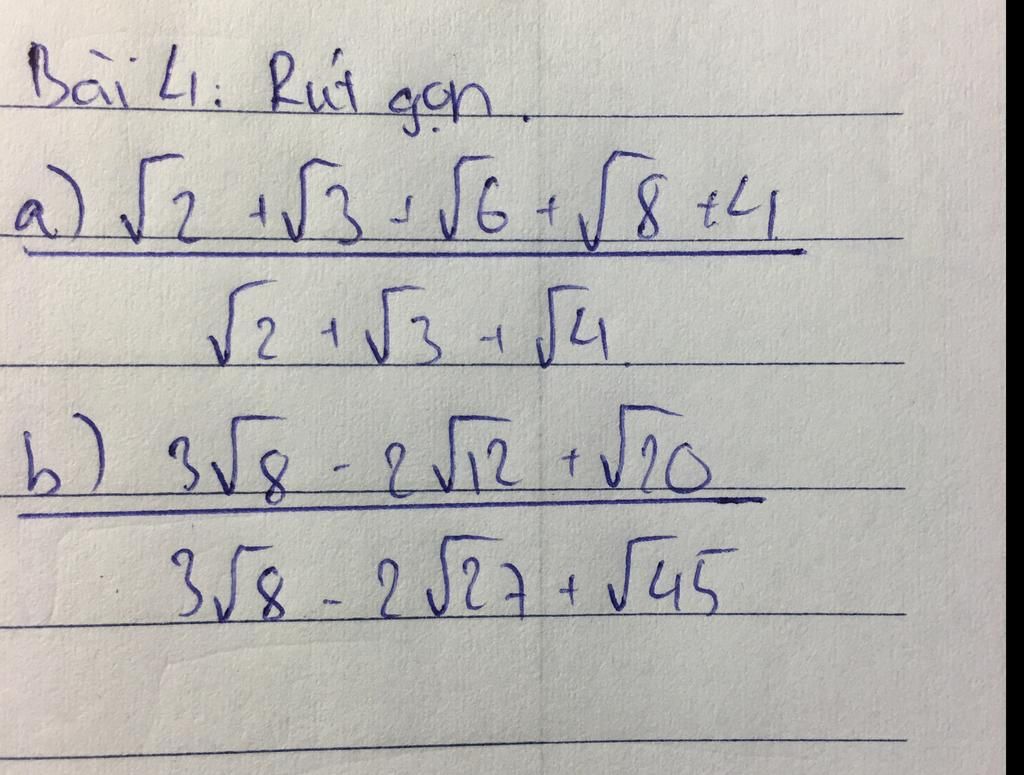 Bài 4: Rút gọn.
a) √2 + √3 + √6 + √8 + 4
√2 + √3 + √4.
b) 3√8 - 2√12 + √20
3√8 - 2√27 + √45